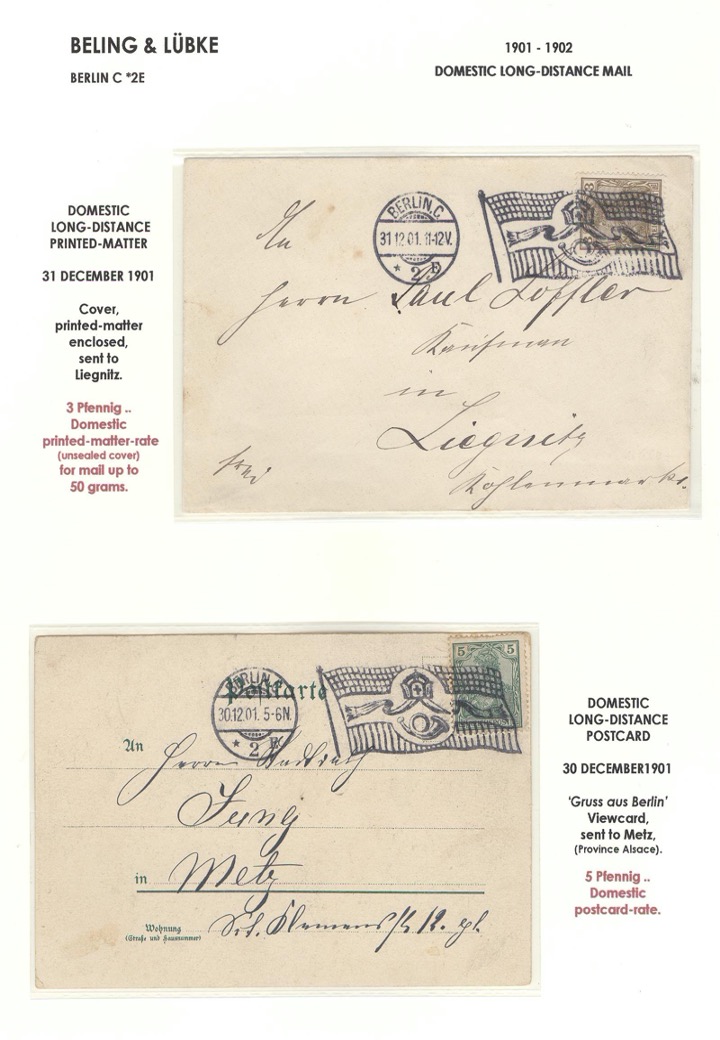 BELING & LÜBKE
BERLIN C *2E
1901 - 1902
DOMESTIC LONG-DISTANCE MAIL
DOMESTIC
LONG-DISTANCE
PRINTED-MATTER
31 DECEMBER 1901
Cover,
printed-matter
enclosed,
sent to
Liegnitz.
3 Pfennig ..
Domestic
printed-matter-rate
(unsealed cover)
for mail up to
50 grams.
BERLIN.C.
31.12.01. 11-12V.
* 2 E
3
An
Herrn Paul Löffler
Kaufmann
in
Liegnitz
frei
Kohlenmarkt.
Postkarte
BERLIN.C.
30.12.01. 5-6N.
* 2 E
5 5
An
Herrn Stadtrath
Jung
in Metz
Wohnung
(Straße und Hausnummer)
St. Klemens
DOMESTIC
LONG-DISTANCE
POSTCARD
30 DECEMBER1901
'Gruss aus Berlin'
Viewcard,
sent to Metz,
(Province Alsace).
5 Pfennig ..
Domestic
postcard-rate.